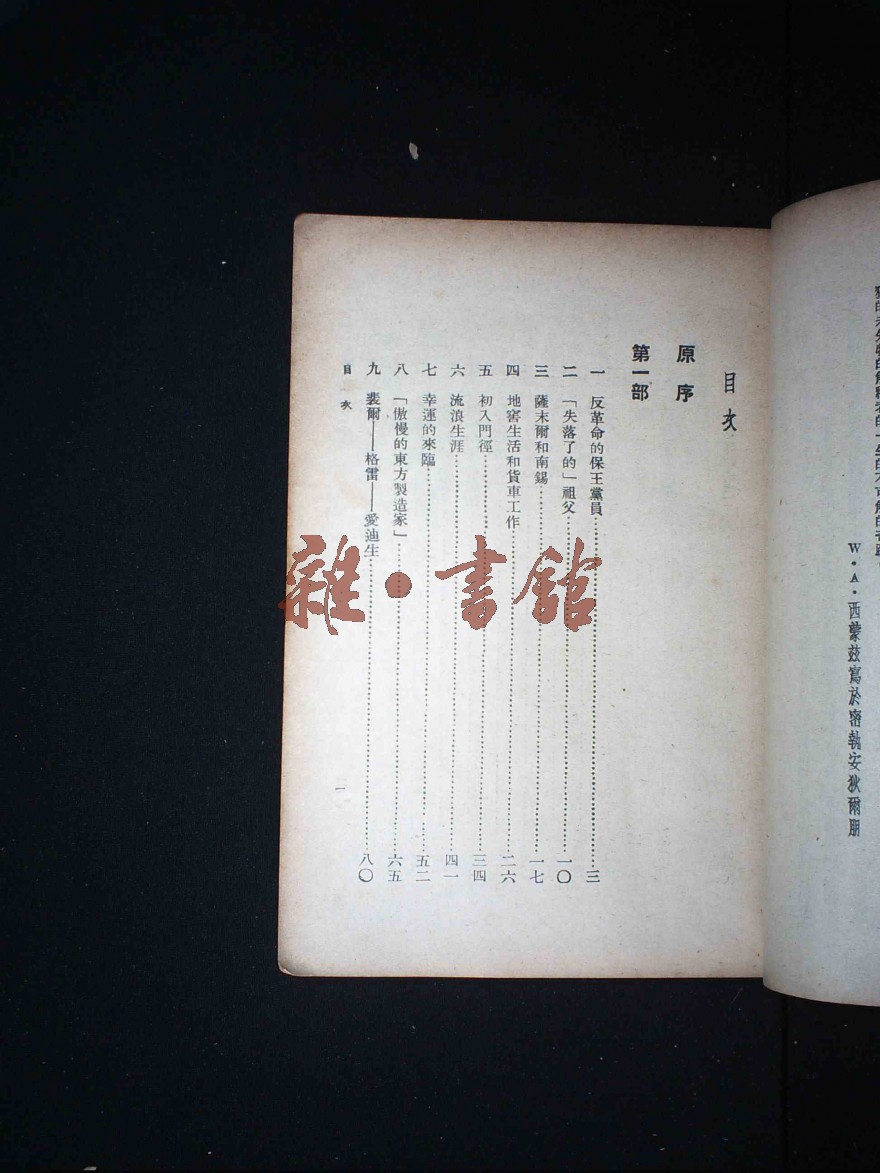 W·A·西蒙茲寫於密執安狄爾朋
目次
原序
第一部
一 反革命的保王黨員 三
二 「失落了的」祖父 一〇
三 薩末爾和南錫 一七
四 地窖生活和貨車工作 二六
五 初入門徑 三四
六 流浪生涯 四一
七 幸運的來臨 五二
八 「傲慢的東方製造家」 六五
九 裴爾——格雷——愛迪生 八〇
目次
一
雜·書館